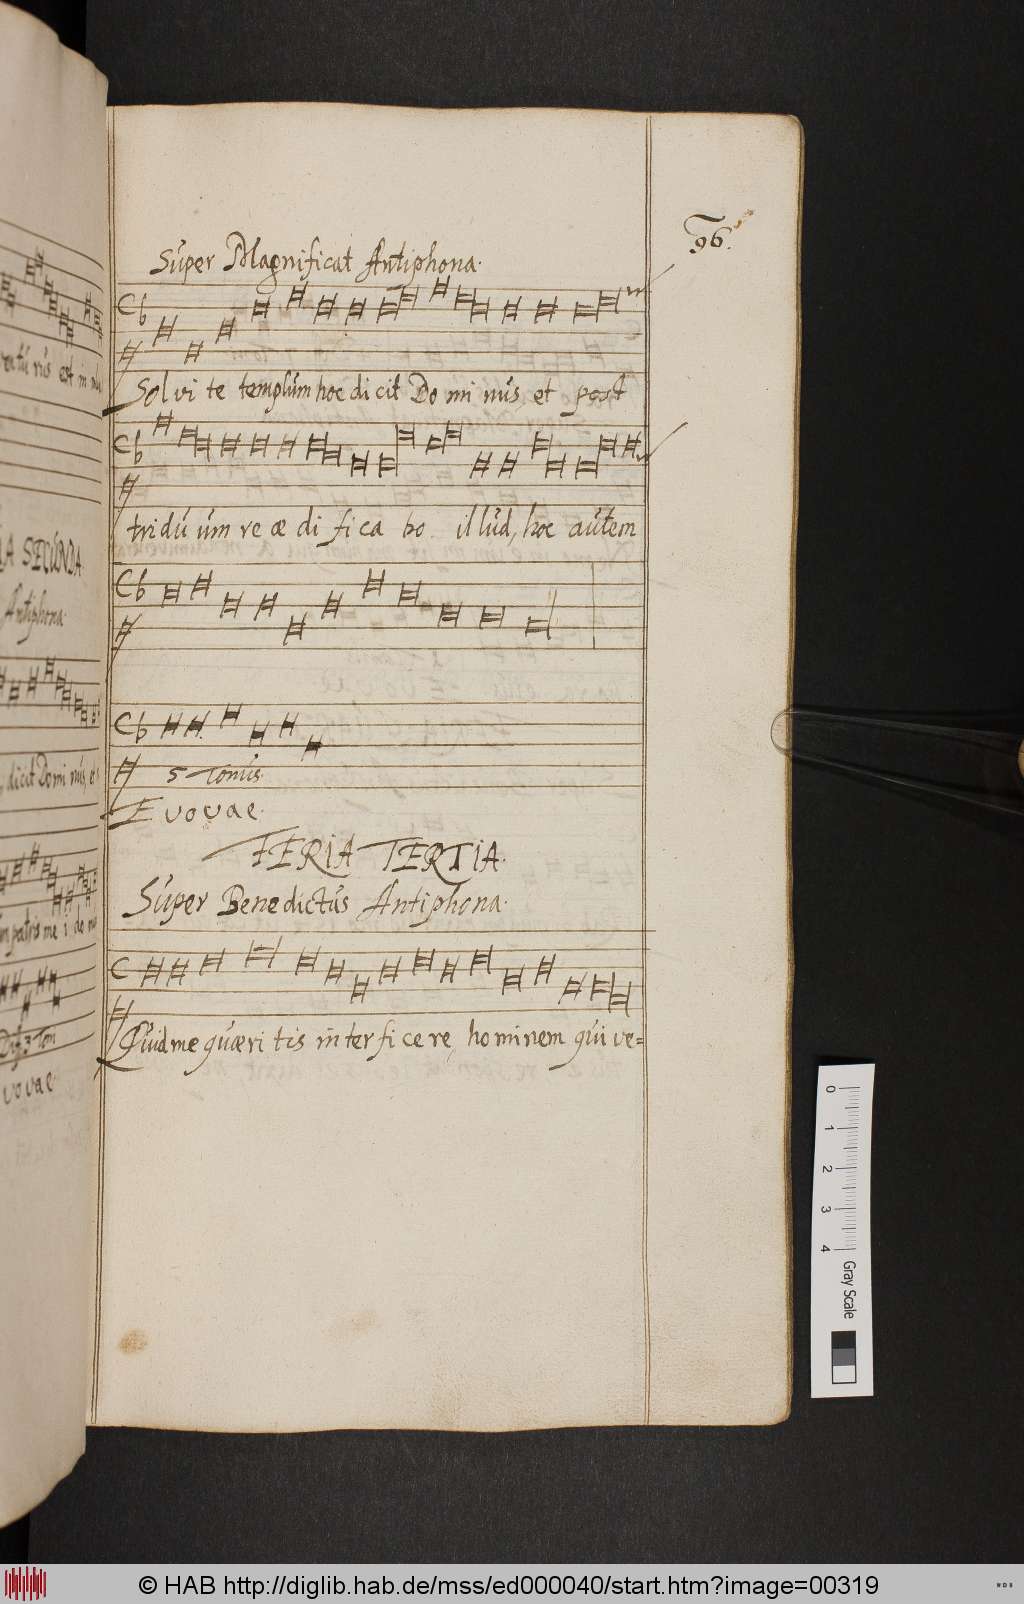 96.
Super Magnificat Antiphona.
Solvi te templum hoc di cit Do mi nus, et post
tridu um re æ di fi ca bo illud, hoc autem
5 Tonus.
E vovae.
FERIA TERTIA.
Super Benedictus Antiphona.
Quid me quæri tis inter fi ce re, ho minem qui ve=
est in
SECUNDA
Antiphona.
dicit Domi nus, et
patris me i do
Ton
vovae
0 1 2 3 4 Gray Scale
© HAB http://diglib.hab.de/mss/ed000040/start.htm?image=00319